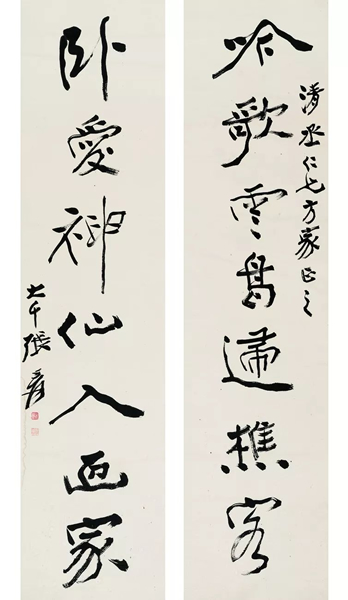 清丞仁兄方家正之
吟歌雲鳥歸樵谷
卧愛神仙入画家
大千張爰